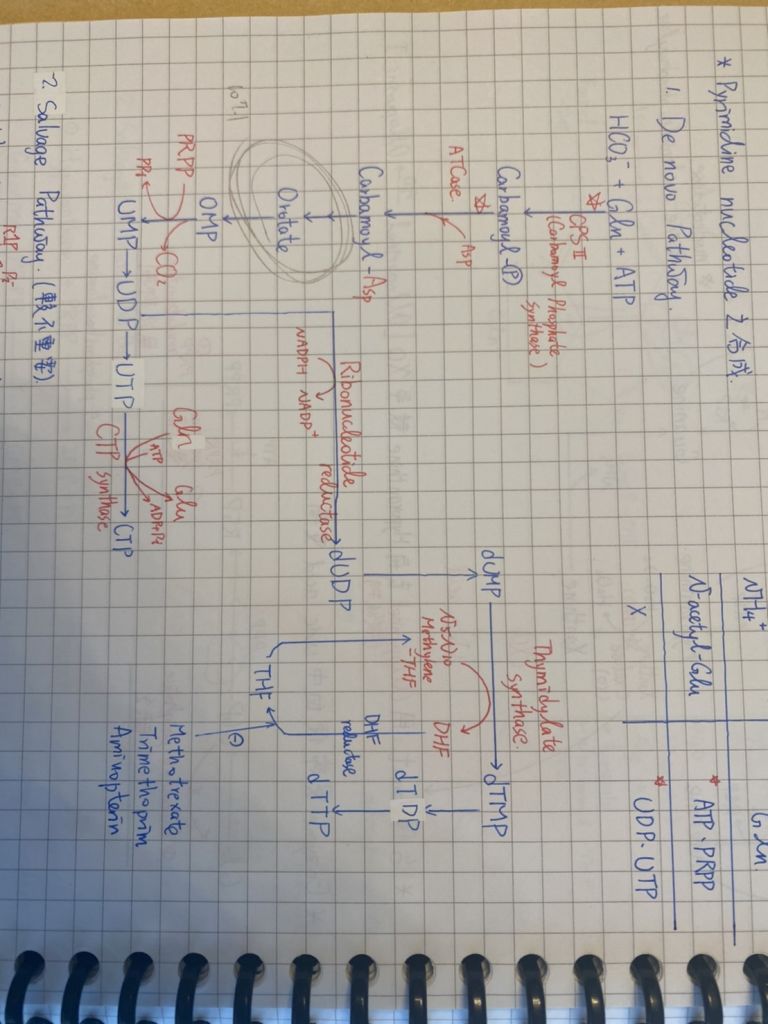 * Pyrimidine nucleotide 之合成.
1. De novo Pathway.
HCO3⁻ + Gln + ATP
CPSⅡ
(Carbamoyl Phosphate
Synthase)
Carbamoyl-Ⓟ
ATCase
Asp
Carbamoyl-Asp
Orotate
OMP
PRPP
PPi
CO2
UMP → UDP → UTP → CTP
Gln
Glu
ATP
ADP+Pi
CTP
synthase
Ribonucleotide
reductase
NADPH NADP⁺
dUDP
dUMP
Thymidylate
synthase.
dTMP
N5N10
Methylene
-THF
DHF
DHF
reductase
THF
dTDP
dTTP
⊖
Methotrexate
Trimethoprim
Aminopterin
NH4⁺
Gln.
N-acetyl-Glu
ATP、PRPP
X
UDP、UTP
2. Salvage Pathway. (較不重要).
R1P
Pi